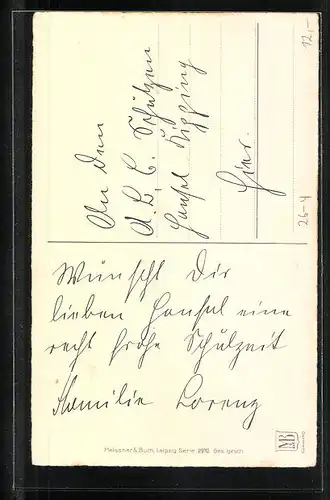 An den
A. B. C. Schützen
Hansel Kipping
Hier.
12,-
26-4
Wünscht Dir
lieben Hansel eine
recht frohe Schulzeit
Familie Lorenz
Meissner & Buch, Leipzig Serie 2970. Ges. gesch.
M&B